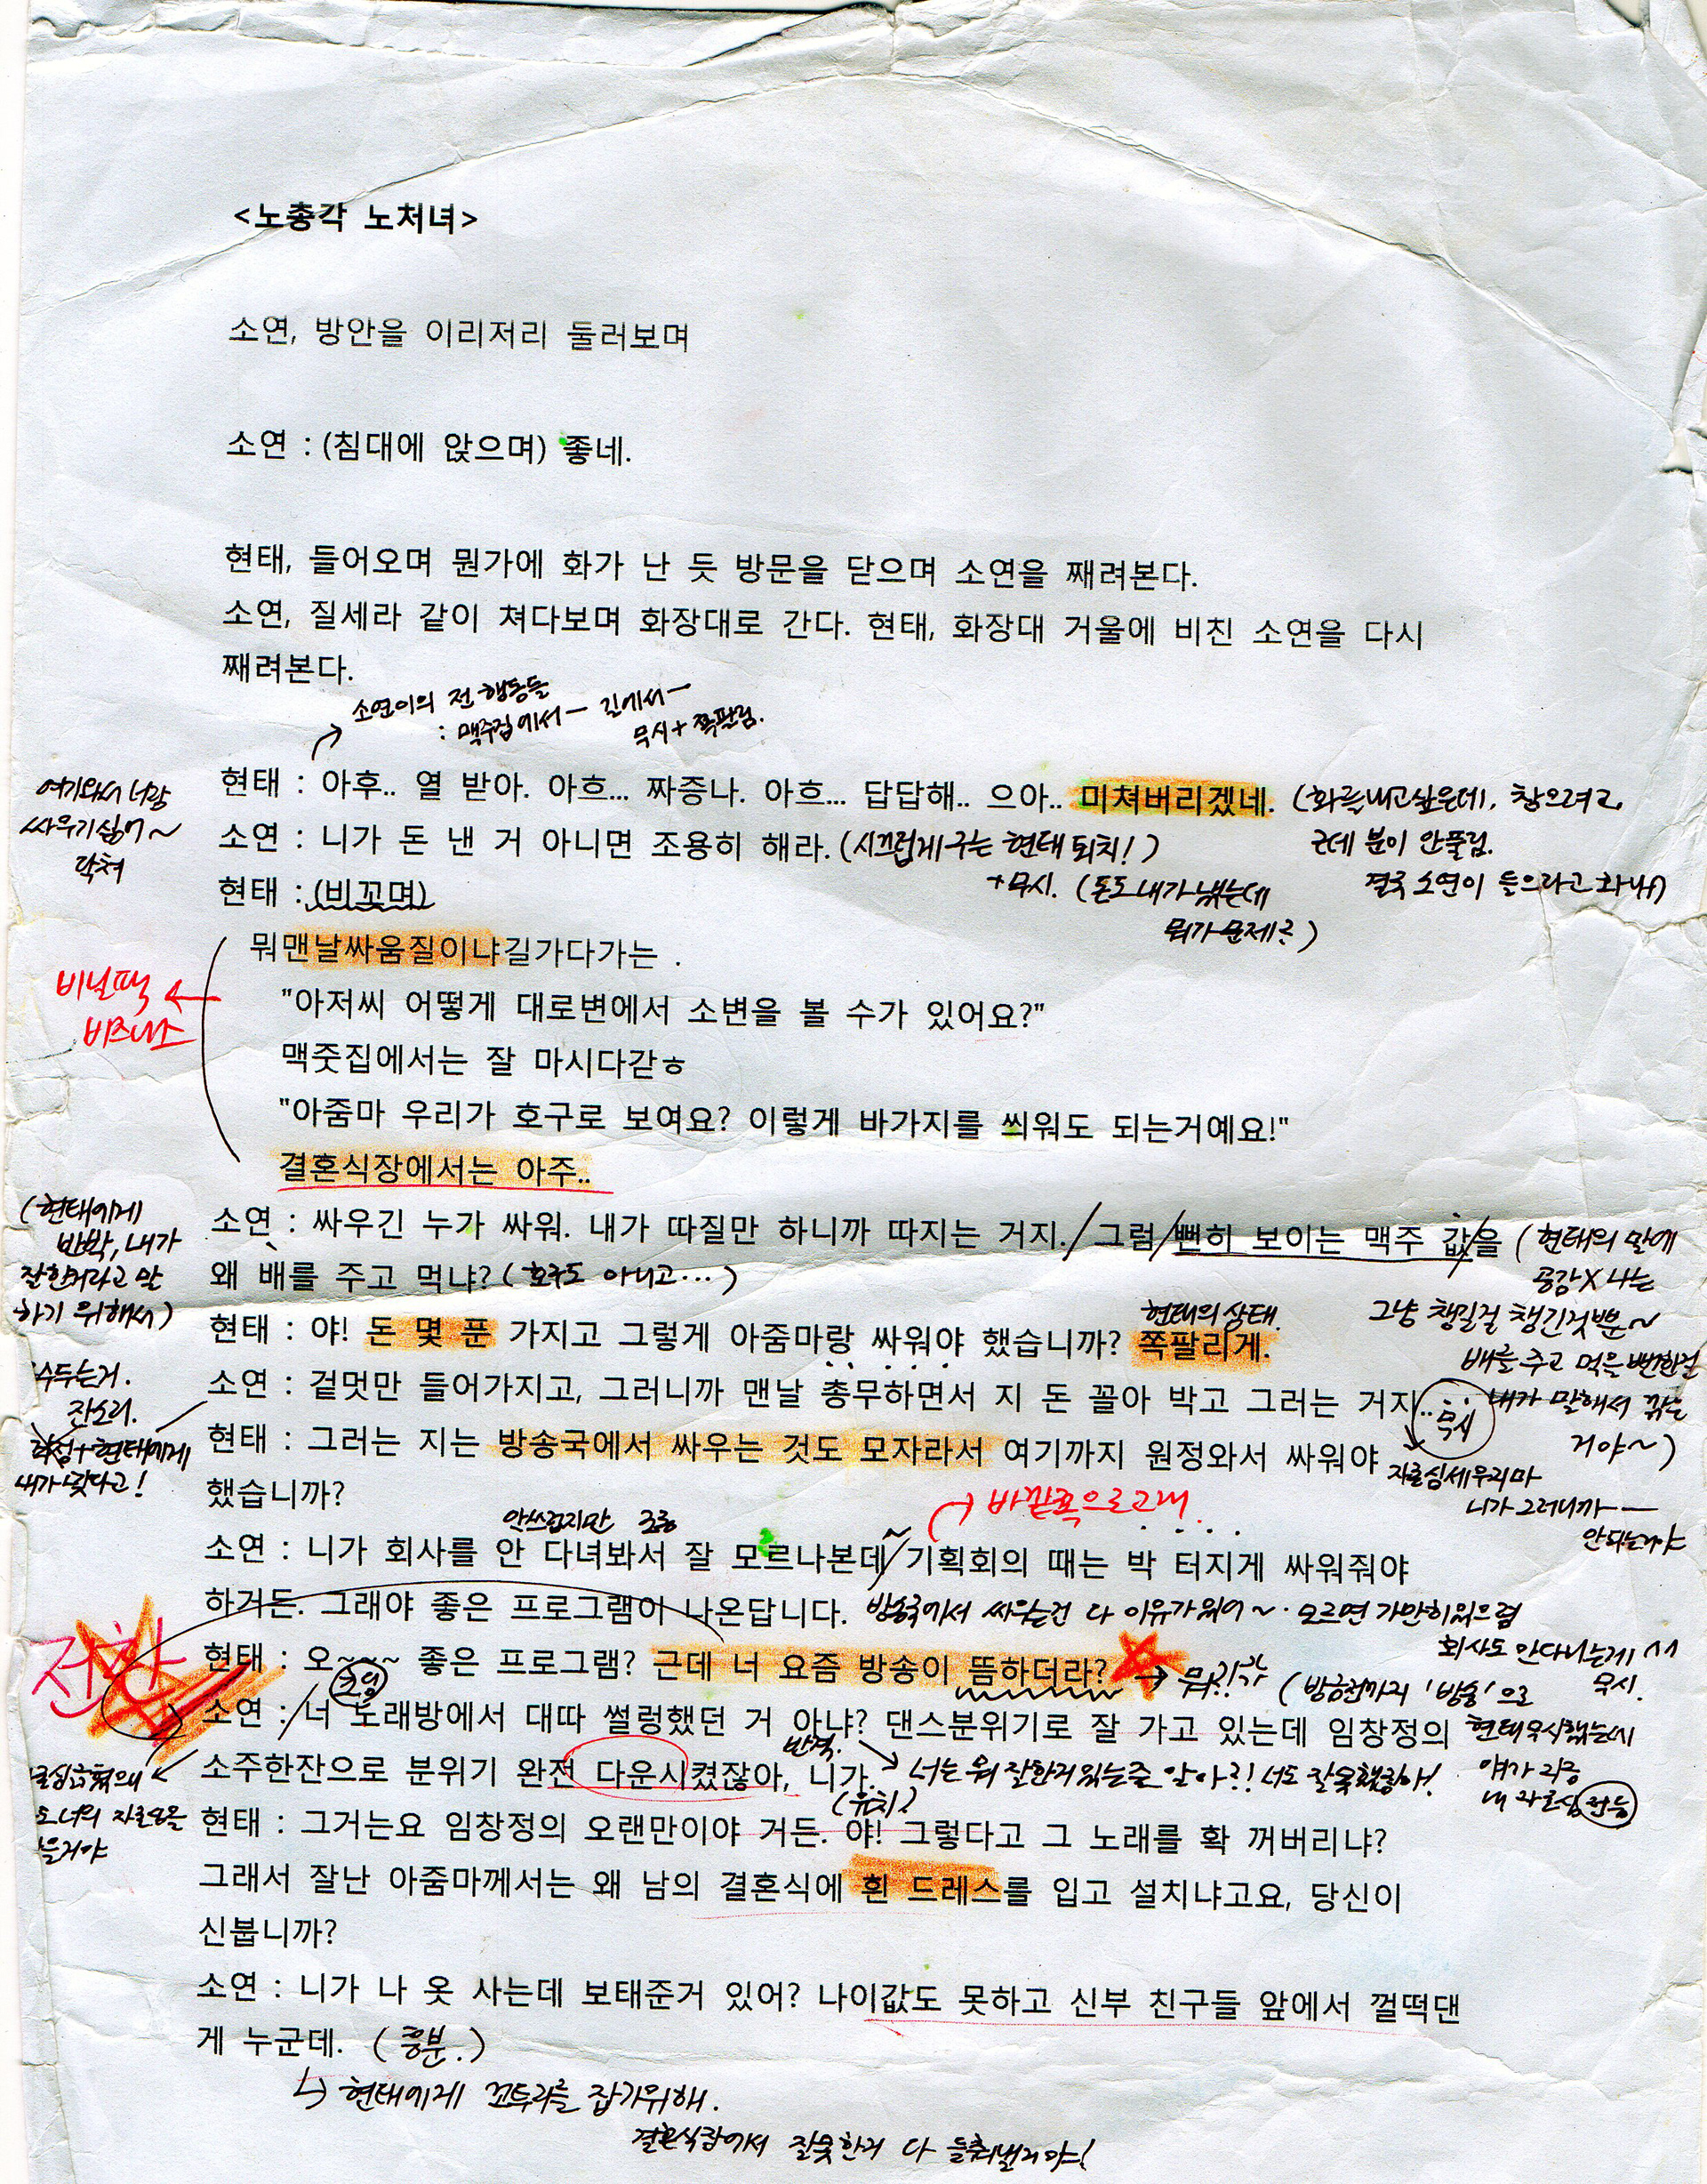 <노총각 노처녀>
소연, 방안을 이리저리 둘러보며
소연 : (침대에 앉으며) 좋네.
현태, 들어오며 뭔가에 화가 난 듯 방문을 닫으며 소연을 째려본다.
소연, 질세라 같이 쳐다보며 화장대로 간다. 현태, 화장대 거울에 비친 소연을 다시
째려본다.
소연이의 전 행동들
: 맥주집에서ㅡ 길에서ㅡ
무시+쪽팔림.
현태 : 아후.. 열 받아. 아흐... 짜증나. 아흐... 답답해.. 으아.. 미쳐버리겠네. (화를내고싶은데, 참으려고
여기와서 너랑
싸우기싫어~
닥쳐
근데 분이 안풀림.
결국 소연이 들으라고 화내기
소연 : 니가 돈 낸 거 아니면 조용히 해라. (시끄럽게구는 현태 퇴치!)
+무시. (돈도 내가 냈는데
뭐가 문제?)
현태 : (비꼬며)
뭐맨날싸움질이냐길가다가는 .
비닐팩
비즈니스
"아저씨 어떻게 대로변에서 소변을 볼 수가 있어요?"
맥줏집에서는 잘 마시다갇ㅎ
"아줌마 우리가 호구로 보여요? 이렇게 바가지를 씌워도 되는거예요!"
결혼식장에서는 아주..
(현태에게
반박, 내가
잘한거라고 말
하기 위해서)
소연 : 싸우긴 누가 싸워. 내가 따질만 하니까 따지는 거지. 그럼 뻔히 보이는 맥주 값을 (현태의 말에
공감X 나는
그냥 챙길걸 챙긴것뿐~
배를 주고 먹을 뻔한걸
내가 말해서 깎은
거야~)
왜 배를 주고 먹냐? (호구도 아니고...)
현태의 상태.
현태 : 야! 돈 몇 푼 가지고 그렇게 아줌마랑 싸워야 했습니까? 쪽팔리게.
소연 : 겉멋만 들어가지고, 그러니까 맨날 총무하면서 지 돈 꼴아 박고 그러는 거지.. 무시
잔소리.
+현태에게
내가 맞다고!
자존심세우지마
니가 그러니까ㅡ
안되는거야
현태 : 그러는 지는 방송국에서 싸우는 것도 모자라서 여기까지 원정와서 싸워야
했습니까?
안쓰럽지만 조롱
바깥쪽으로고개.
소연 : 니가 회사를 안 다녀봐서 잘 모르나본데 기획회의 때는 박 터지게 싸워줘야
하거든. 그래야 좋은 프로그램이 나온답니다. 방송국에서 싸우는건 다 이유가있어~. 모르면 가만히있으렴
회사도 안다니는게 ^^
무시.
전환
현태 : 오~~~ 좋은 프로그램? 근데 너 요즘 방송이 뜸하더라? → 뭐?!
(방금전까지 '방송'으로
현태무시했는데
얘가 지금
내 자존심 건듬
소연 : 너 노래방에서 대따 썰렁했던 거 아냐? 댄스분위기로 잘 가고 있는데 임창정의
소주한잔으로 분위기 완전 다운시켰잖아, 니가. 너는 뭐 잘한거있는줄 알아?! 너도 잘못했잖아!
반격.
(유치)
현태 : 그거는요 임창정의 오랜만이야 거든. 야! 그렇다고 그 노래를 확 꺼버리냐?
그래서 잘난 아줌마께서는 왜 남의 결혼식에 흰 드레스를 입고 설치냐고요, 당신이
신붑니까?
소연 : 니가 나 옷 사는데 보태준거 있어? 나이값도 못하고 신부 친구들 앞에서 껄떡댄
게 누군데. (흥분.)
현태에게 꼬투리를 잡기위해.
결혼식장에서 잘못한거 다 들춰낼거야!